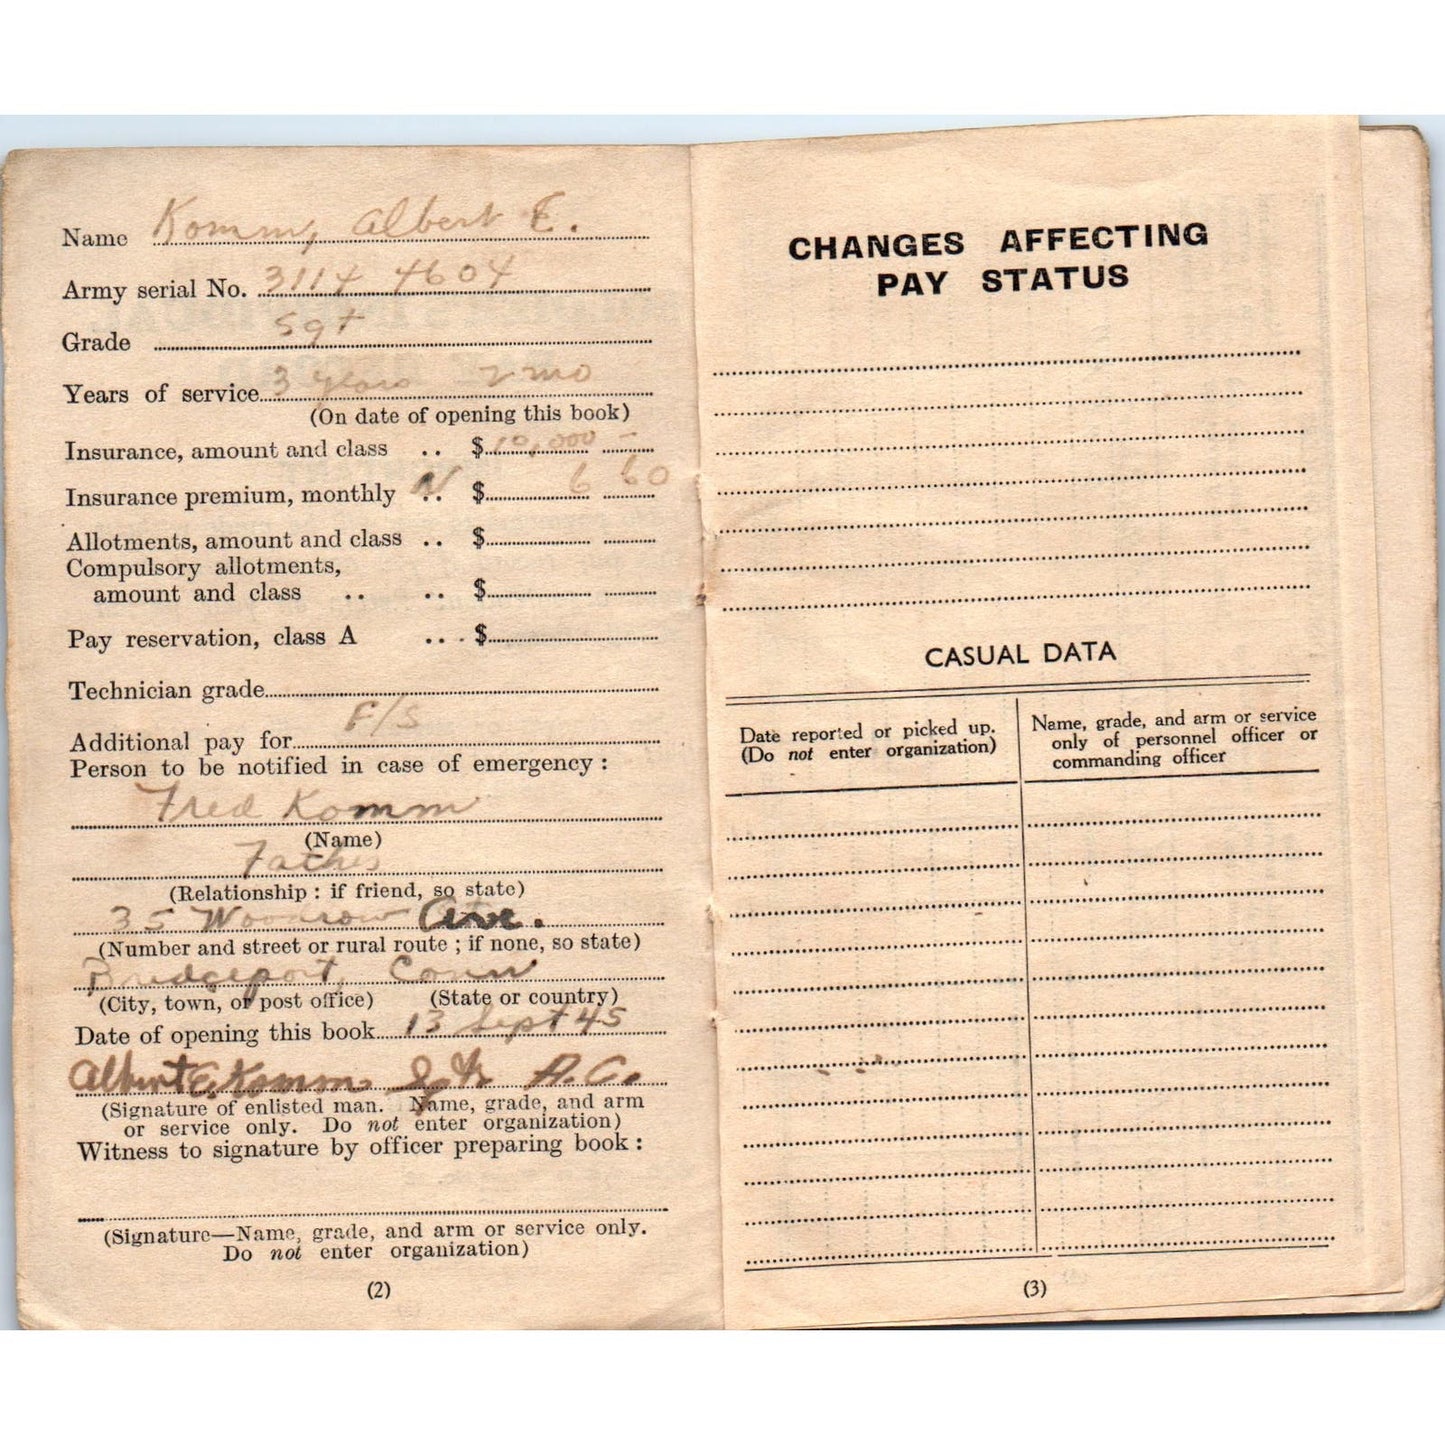 Name Komm, Albert E.
Army serial No. 3114 4604
Grade Sgt
Years of service 3 years 2 mo
(On date of opening this book)
Insurance, amount and class .. $10,000 –
Insurance premium, monthly N .. $ 6 60
Allotments, amount and class .. $
Compulsory allotments,
amount and class .. .. $
Pay reservation, class A ... $
Technician grade
Additional pay for F/S
Person to be notified in case of emergency :
Fred Komm
(Name)
Father
(Relationship : if friend, so state)
35 Woodrow Ave.
(Number and street or rural route ; if none, so state)
Bridgeport, Conn
(City, town, or post office) (State or country)
Date of opening this book 13 Sept 45
Albert E. Komm Sgt A.C.
(Signature of enlisted man. Name, grade, and arm
or service only. Do not enter organization)
Witness to signature by officer preparing book :
(Signature—Name, grade, and arm or service only.
Do not enter organization)
(2)
CHANGES AFFECTING
PAY STATUS
CASUAL DATA
Date reported or picked up.
(Do not enter organization)
Name, grade, and arm or service
only of personnel officer or
commanding officer
(3)